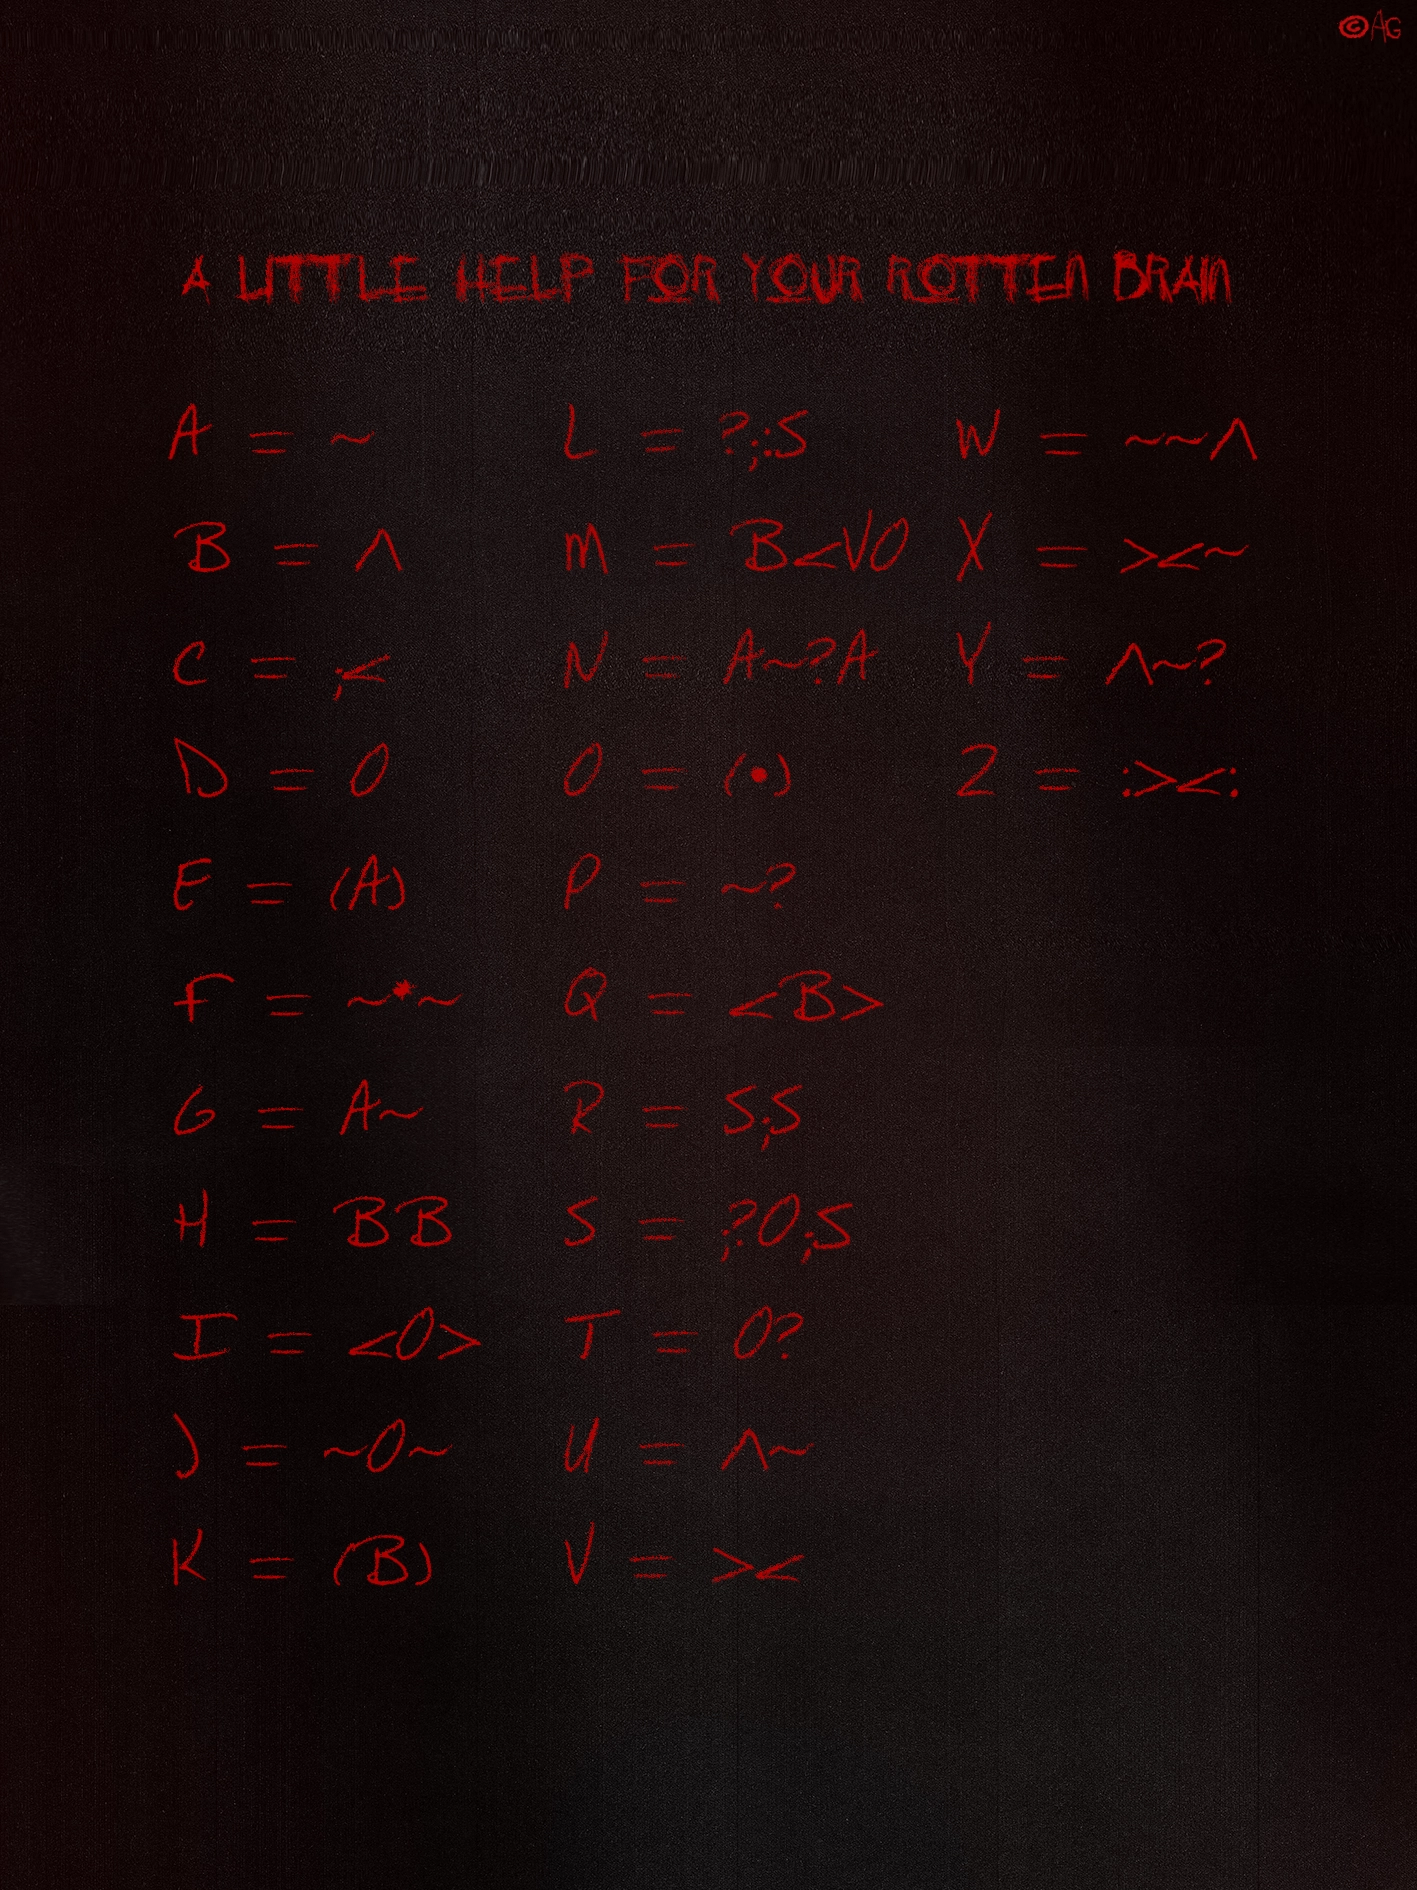 ©AG
A LITTLE HELP FOR YOUR ROTTEN BRAIN
A = ~
B = ^
C = ;<
D = O
E = (A)
F = ~*~
G = A~
H = BB
I = <O>
J = ~O~
K = (B)
L = ?;:S
M = B<VO
N = A~?A
O = (•)
P = ~?
Q = <B>
R = S;S
S = ;?O;S
T = O?
U = ^~
V = ><
W = ~~^
X = ><~
Y = ^~?
Z = :><: